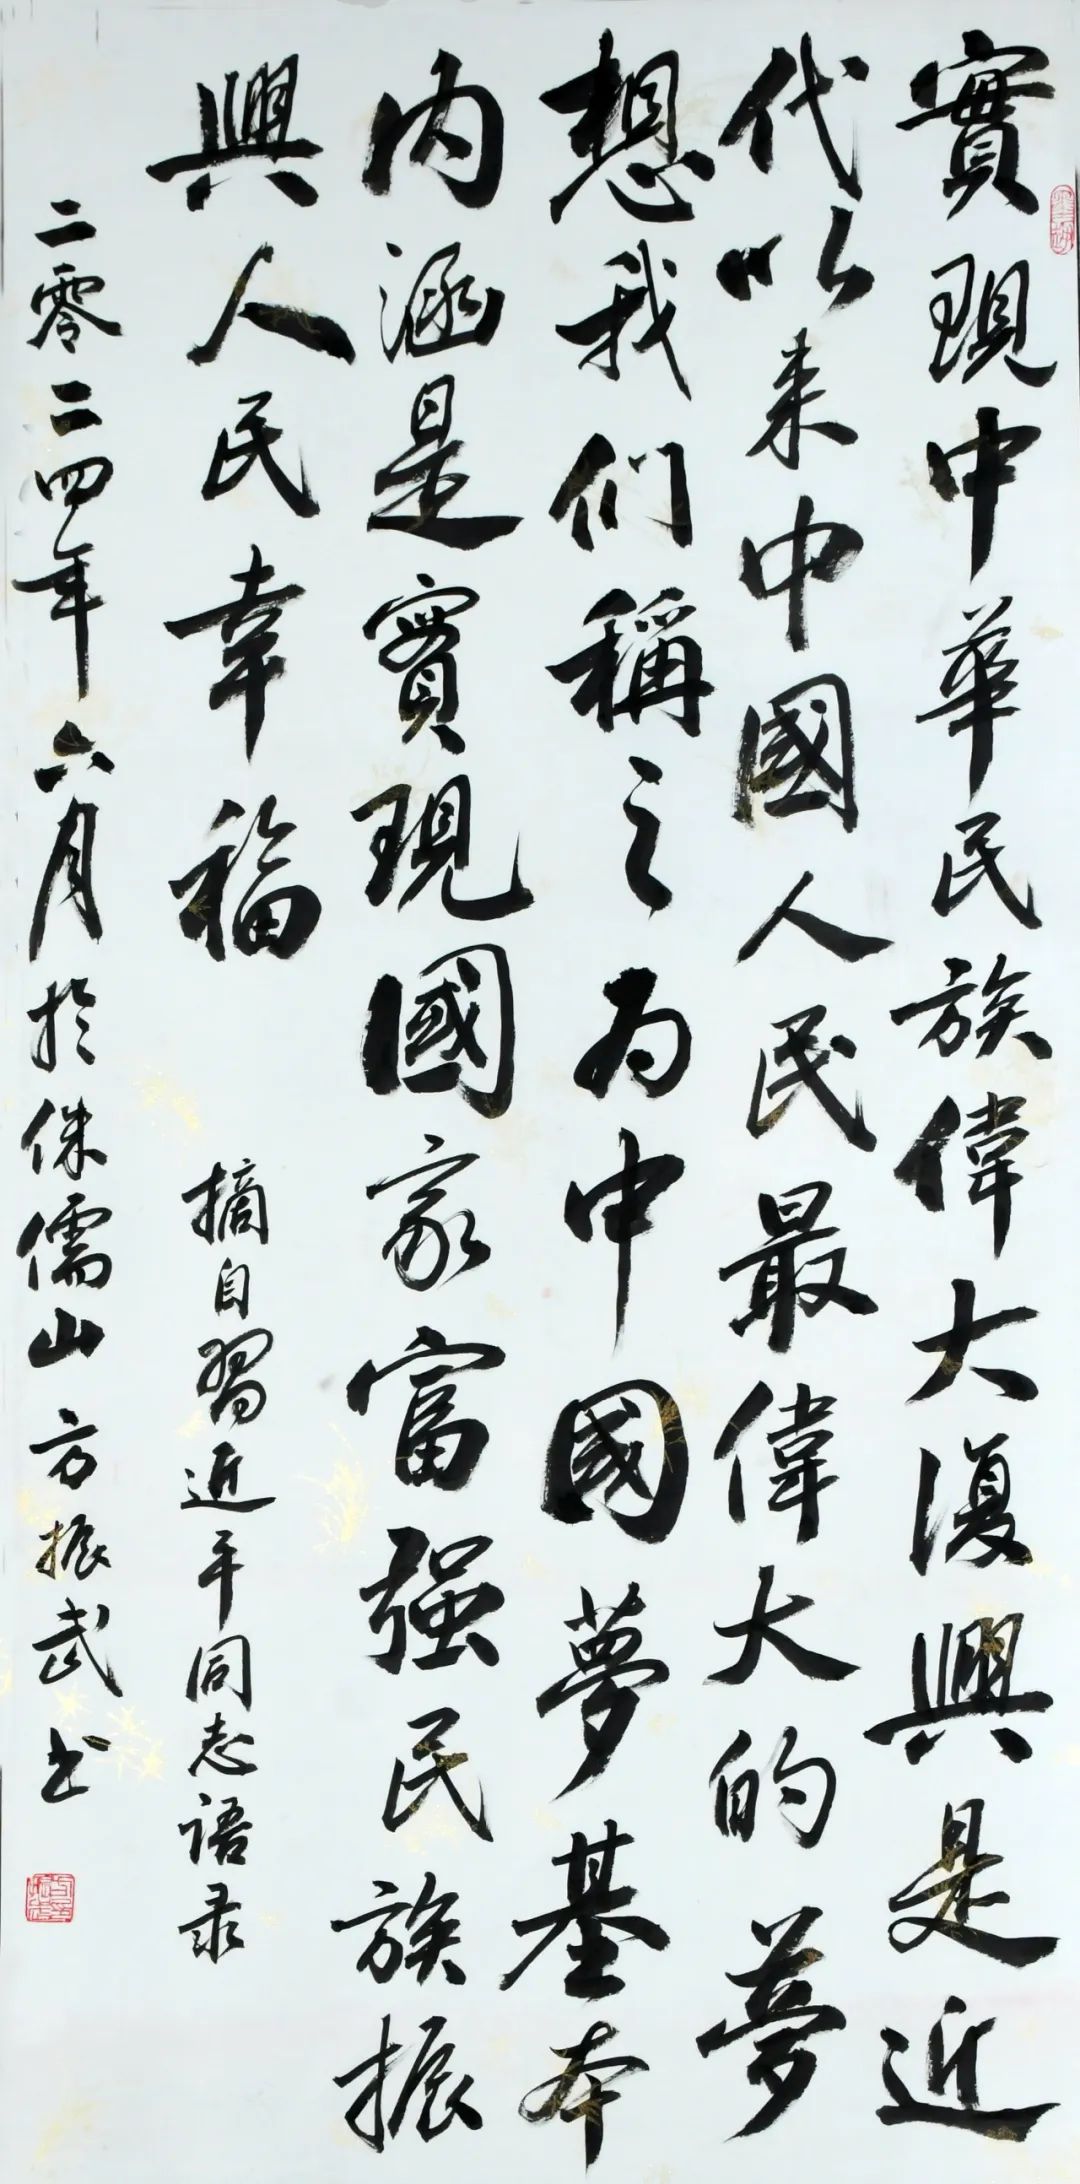 實現中華民族偉大復興是近
代以来中國人民最偉大的夢
想我们稱之为中國夢基本
内涵是實現國家富强民族振
興人民幸福
摘自習近平同志语录
二零二四年六月於侏儒山方振武书